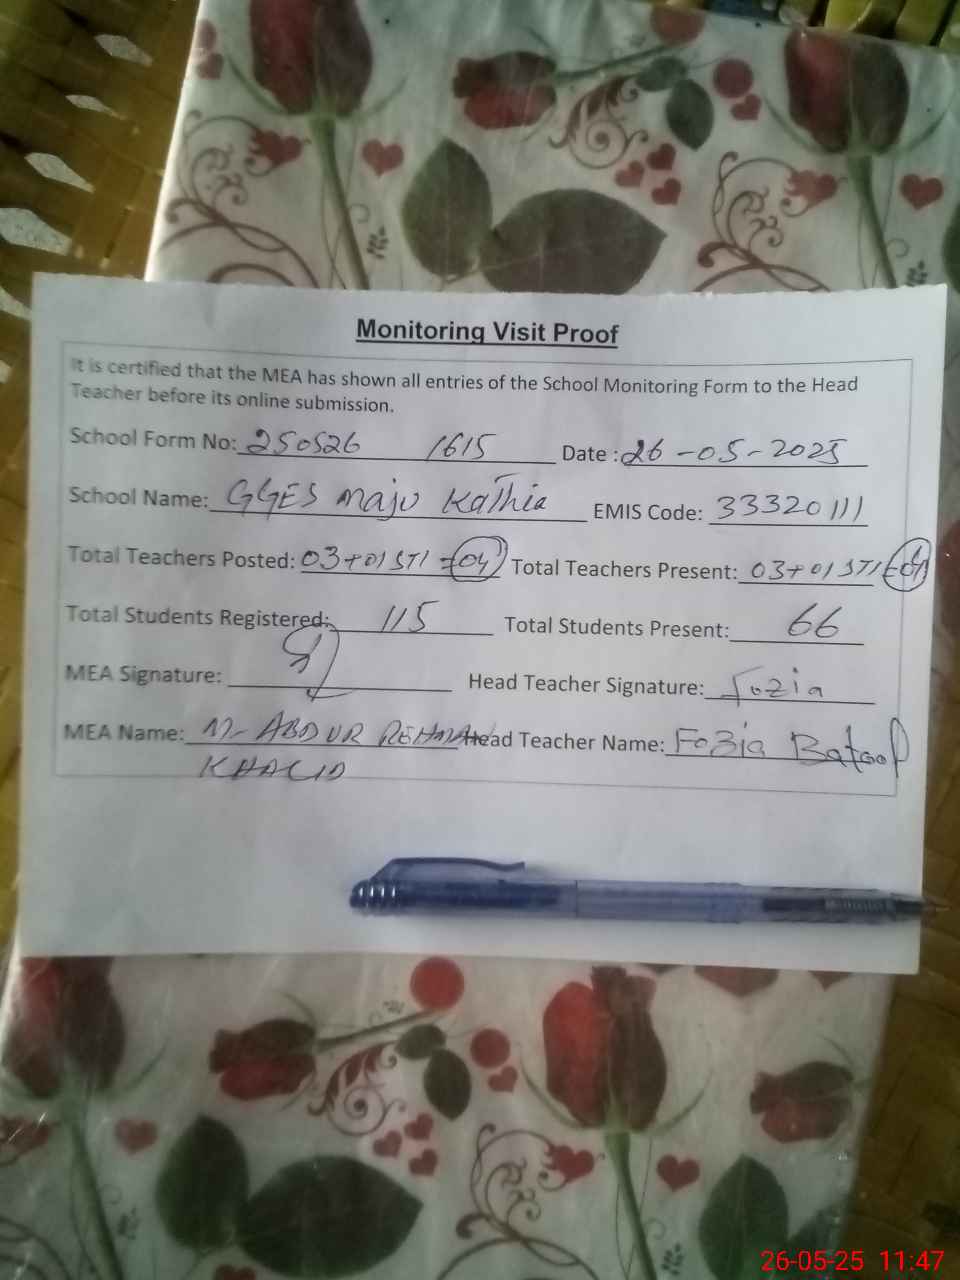 Monitoring Visit Proof
It is certified that the MEA has shown all entries of the School Monitoring Form to the Head
Teacher before its online submission.
School Form No: 250526 1615 Date : 26-05-2025
School Name: GGES Maju Kathia EMIS Code: 33320111
Total Teachers Posted: 03+01 STI = 04 Total Teachers Present: 03+01 STI = 04
Total Students Registered: 115 Total Students Present: 66
MEA Signature: Head Teacher Signature: Fozia
MEA Name: M- ABDUR REHMAN Head Teacher Name: Fozia Batool
KHALID
26-05-25 11:47